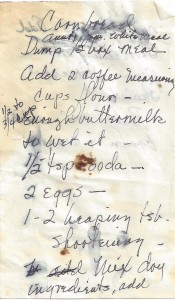 Cornbread
Aunt white meal
Dump 1 box meal
Add 2 coffee measuring
cups flour —
1/2 to
3/4 cups
enough buttermilk
to wet it —
1/2 tsp soda —
2 eggs —
1-2 heaping tsb.
shortening —
add Mix dry
ingredients, add